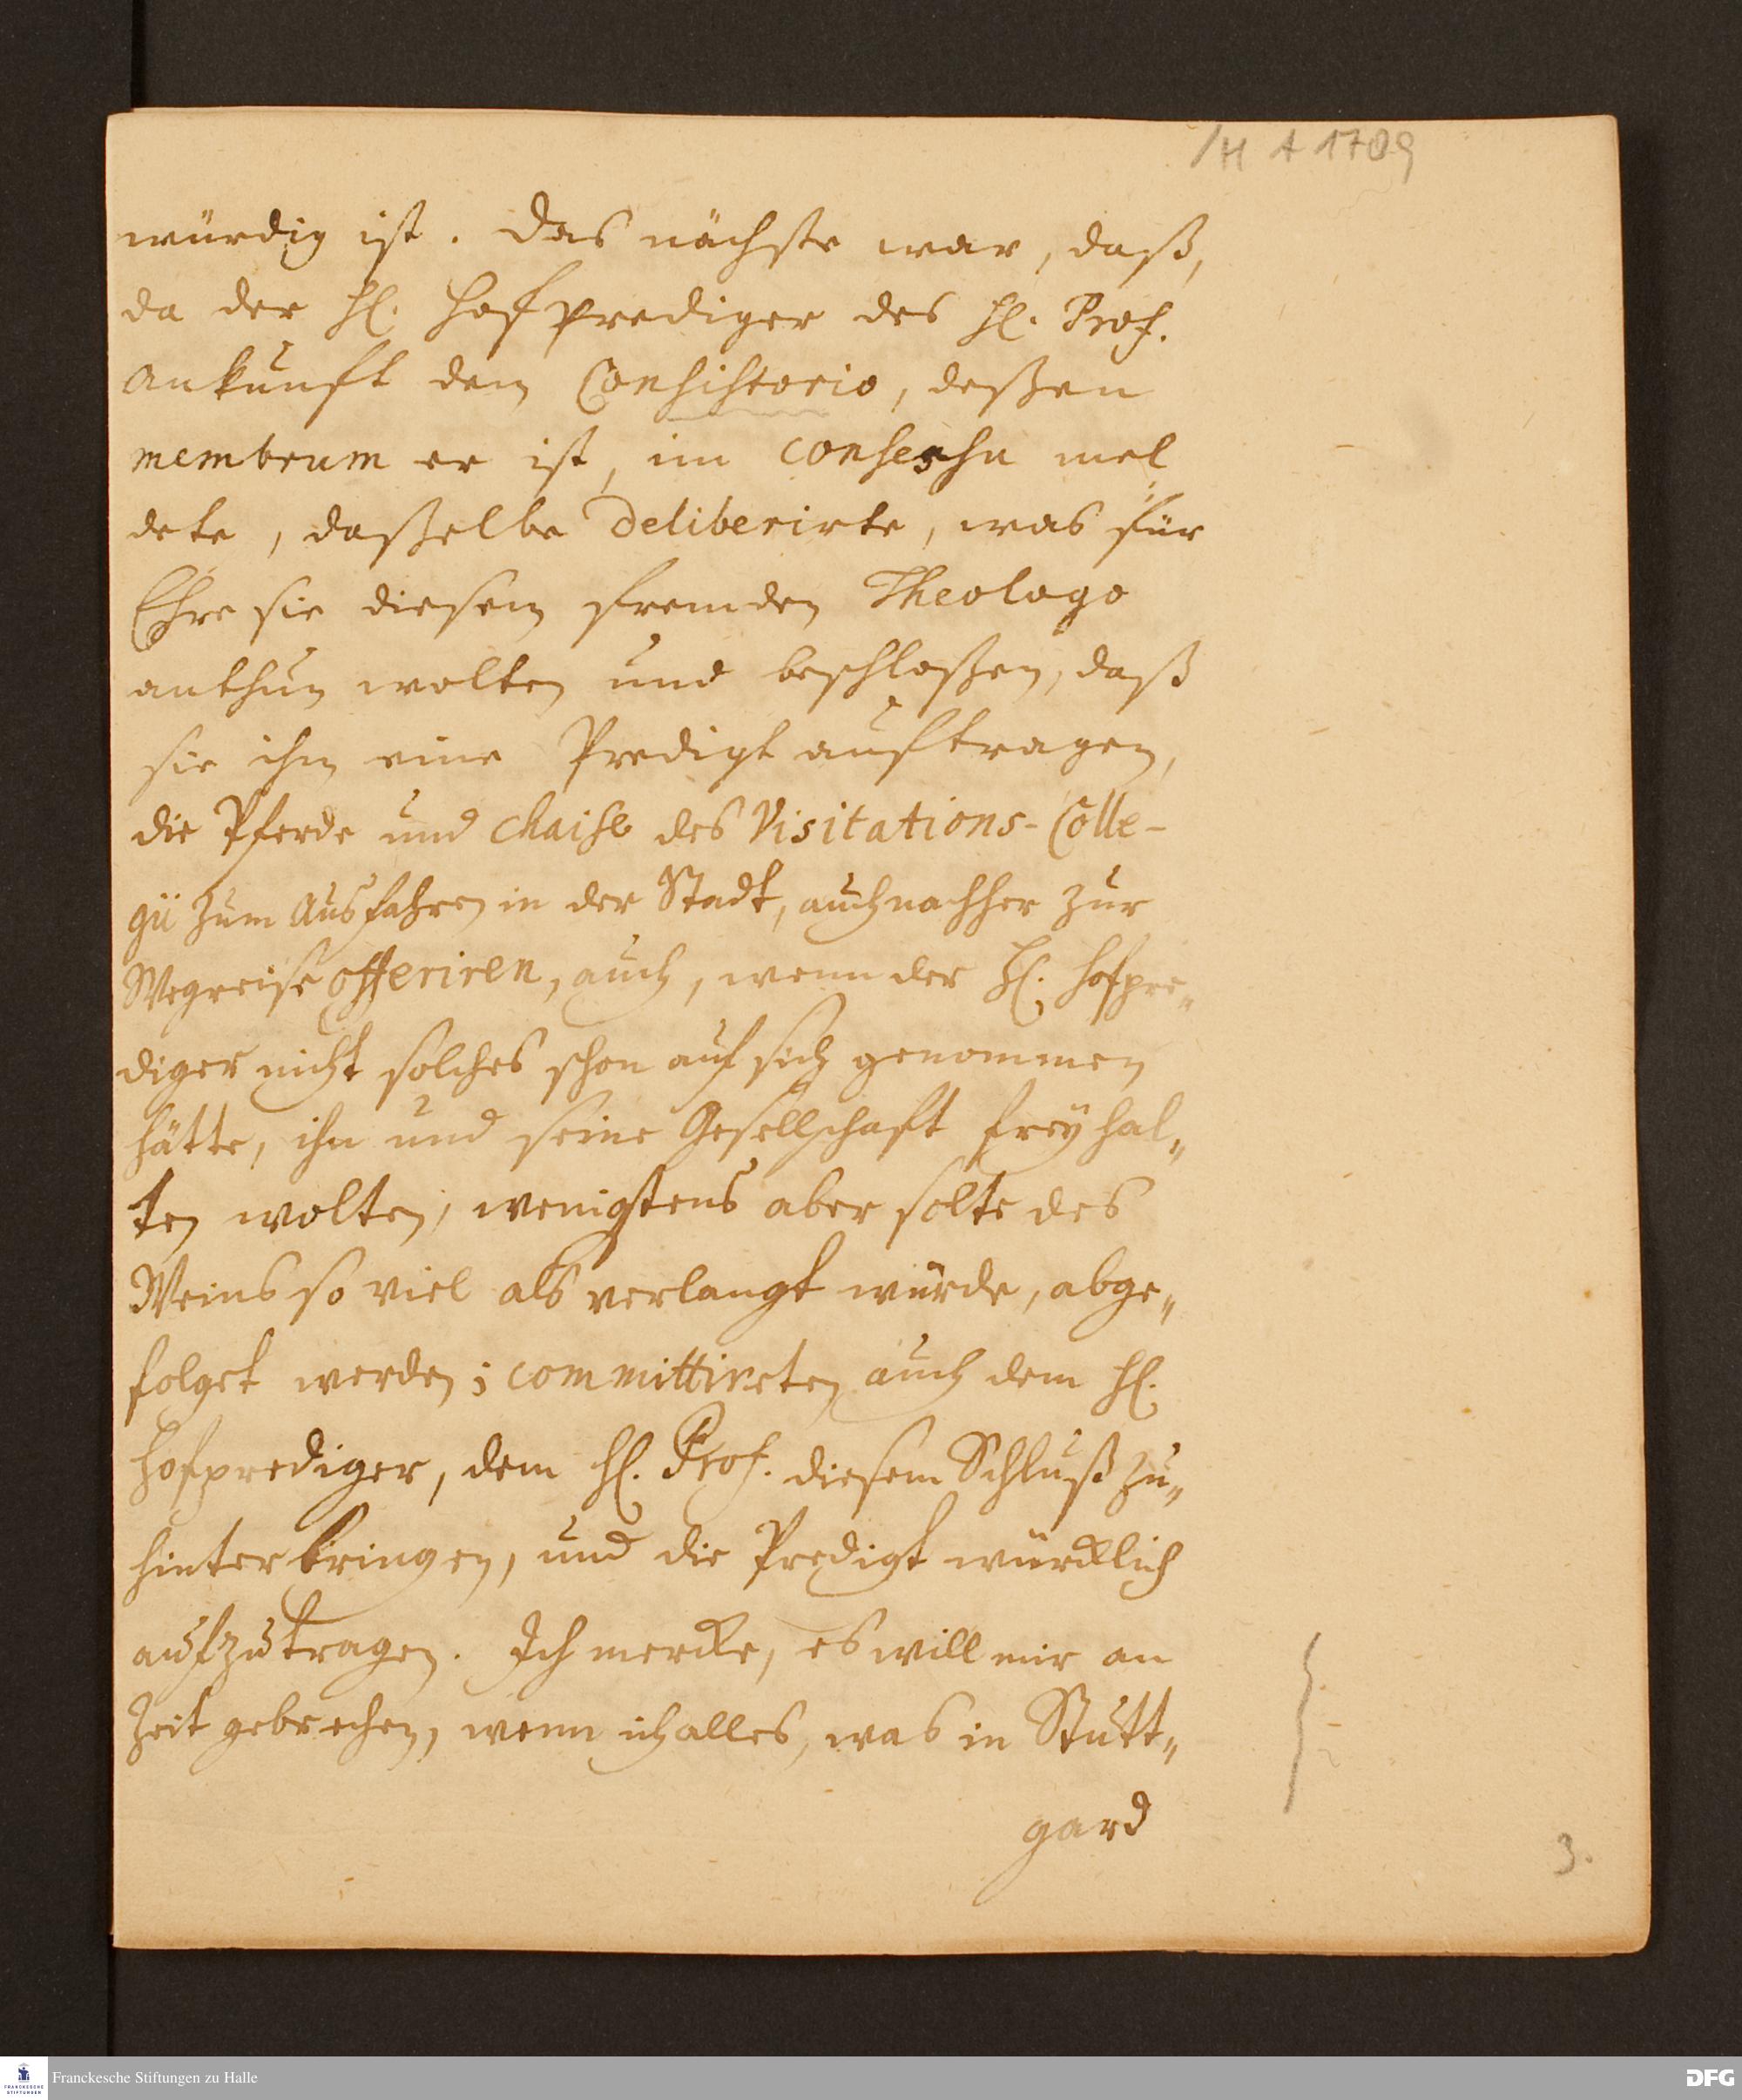 /H A 1789
würdig ist. Das nächste war, daß,
da der H. Hofprediger des H. Prof.
Ankunft dem Consistorio, deßen
membrum er ist, im consessu mel„
dete, daßelbe deliberirte, was für
Ehre sie diesem fremden Theologo
anthun wolten und beschloßen, daß
sie ihm eine Predigt auftragen,
die Pferde und chaise des Visitations-Colle-
gii zum Ausfahren in der Stadt, auch nachher zur
Wegreise offeriren, auch, wenn der H. Hofpre„
diger nicht solches schon auf sich genommen
hätte, ihn und seine Gesellschaft freÿ hal„
ten wolten, wenigstens aber solte des
Weins so viel als verlangt würde, abge„
folget werden; committireten auch dem H.
Hofprediger, dem H. Prof. diesem Schluß zu„
hinterbringen, und die Predigt würcklich
aufzutragen. Ich mercke, es will mir an
Zeit gebrechen, wenn ich alles, was in Stutt„
gard
3.
Franckesche Stiftungen zu Halle
DFG